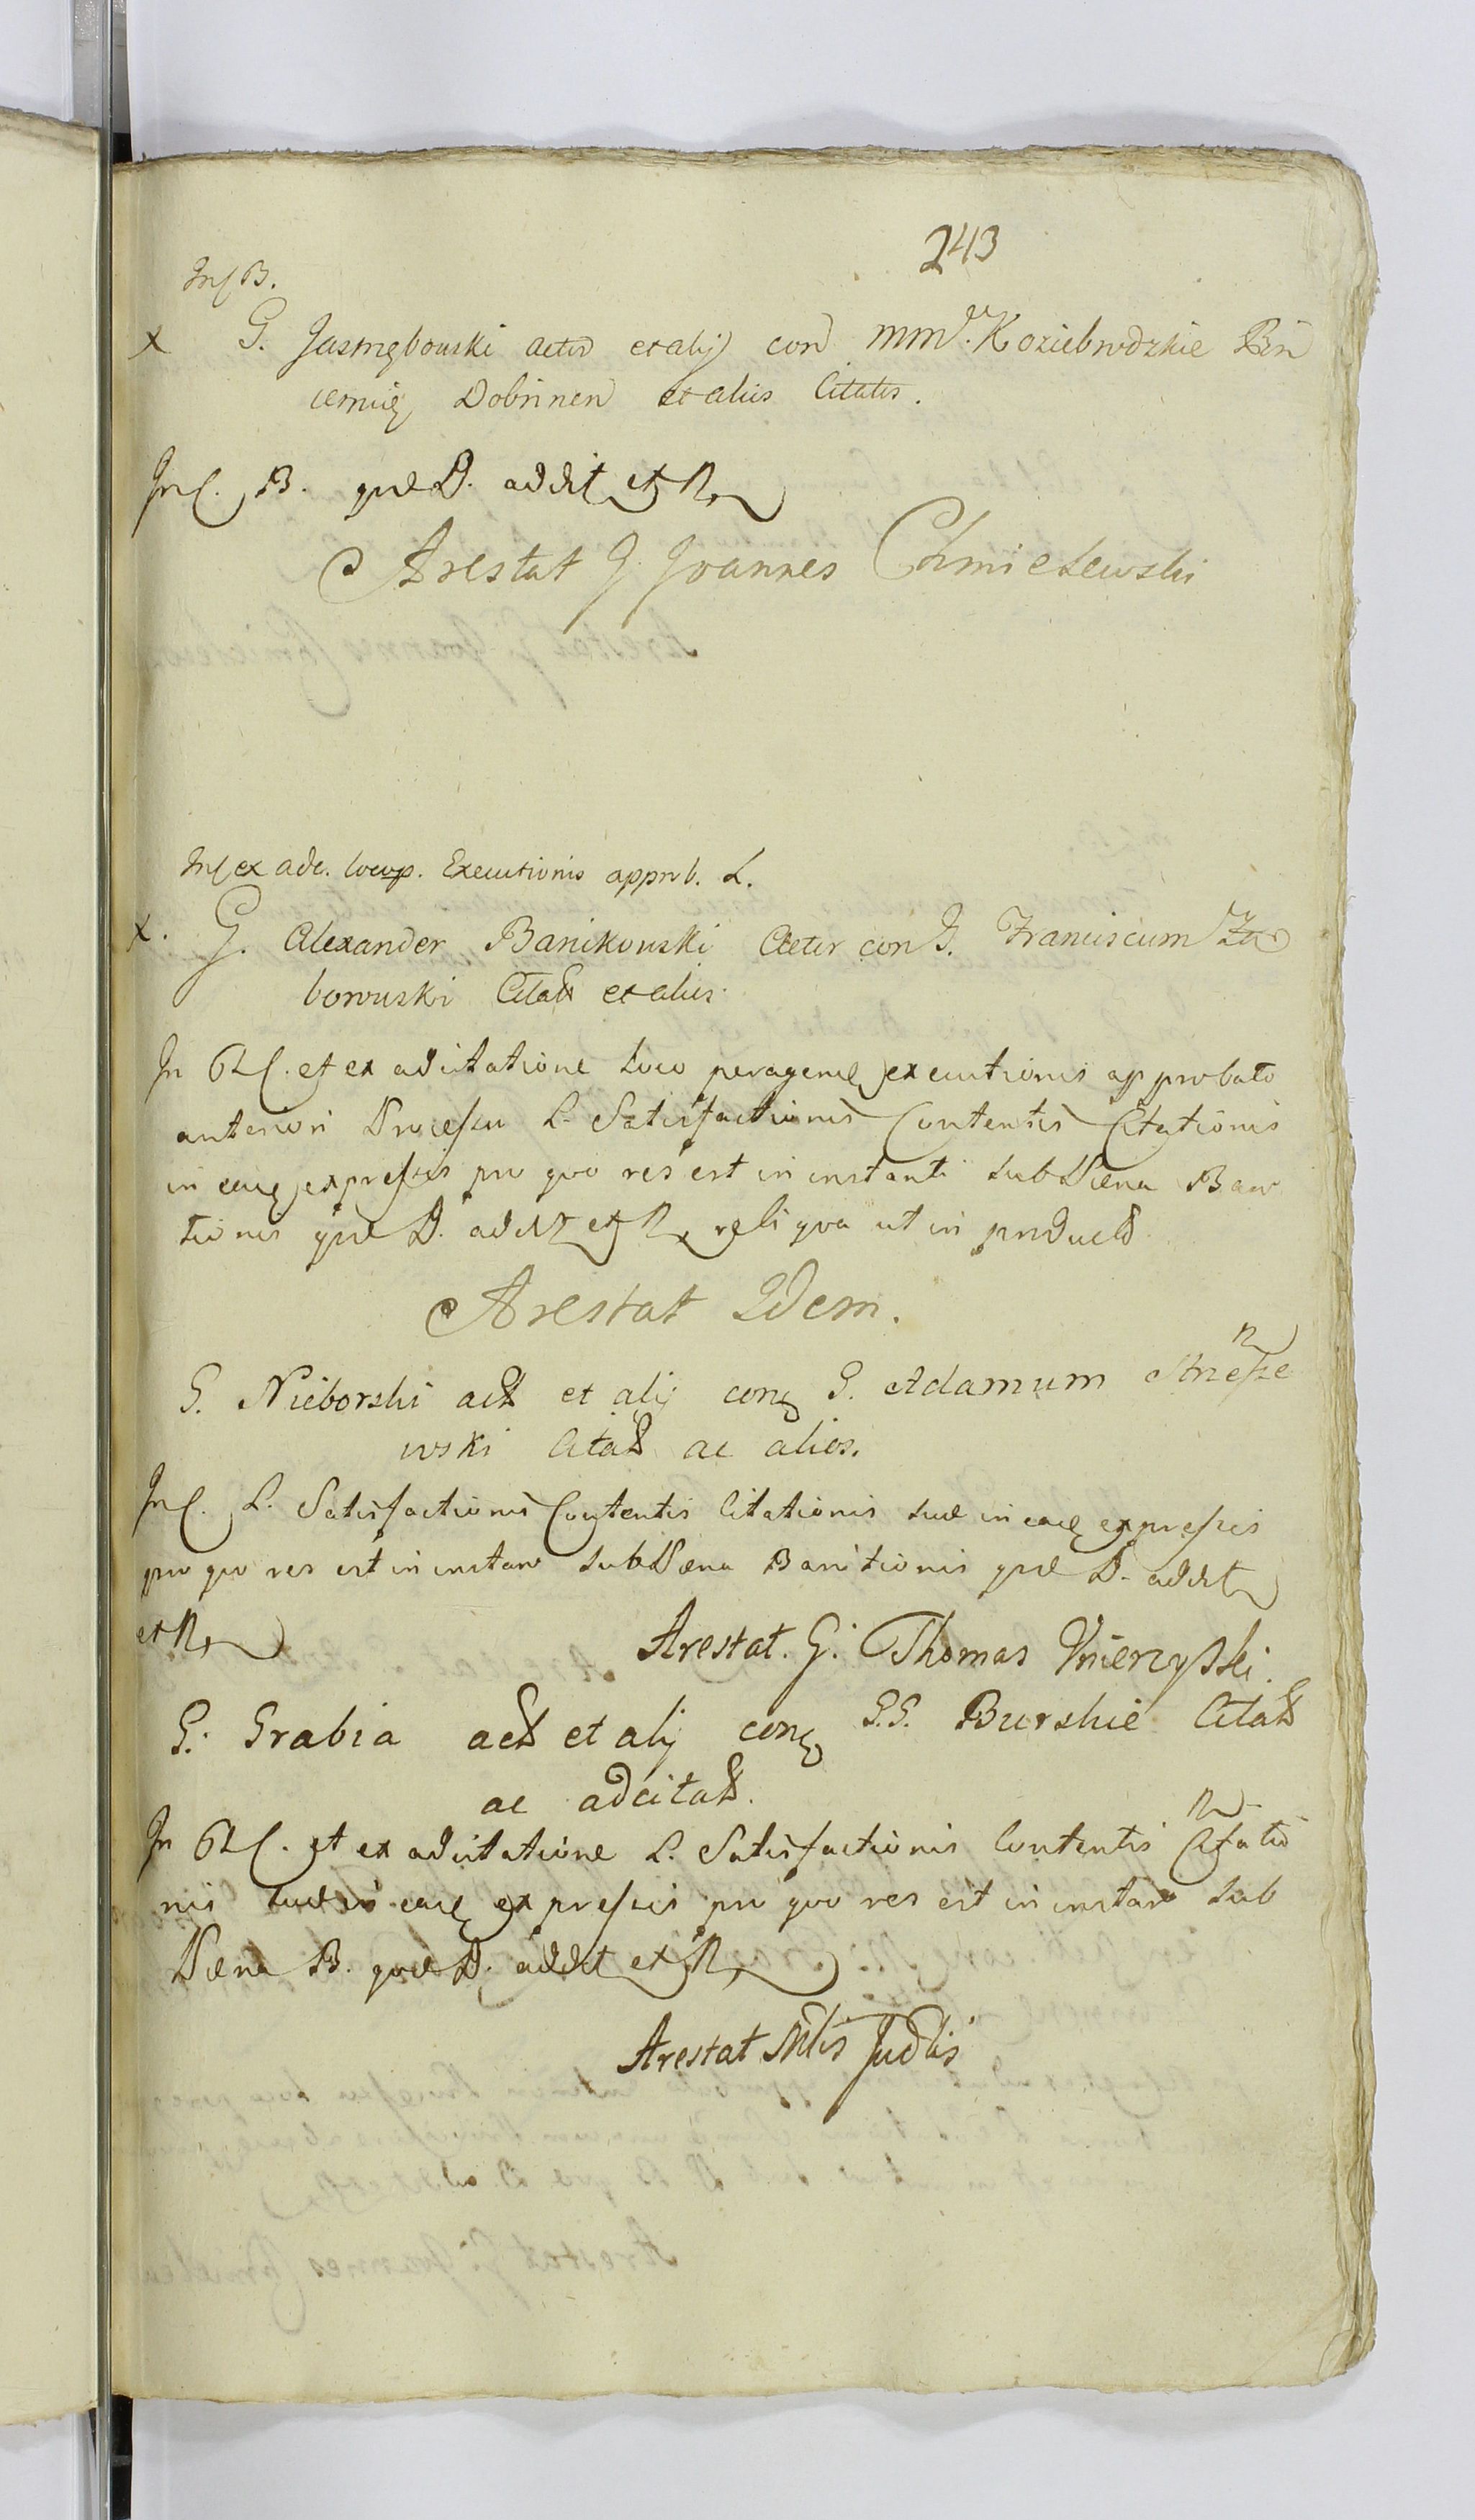 243
In ſ B.
x G. Jastrzębowski Actor et alij con MM. Koziebrodzkie Pin
cernię Dobrinen et aliis Citatis.
In ſ. B. quæ D. addit et R
Arestat G. Joannes Chmielewski
In ſ ex adc. locup. Executionis approb. L.
x. G. Alexander Banikowski Actor con G. Franciscum Za
borowski Citat et aliis.
In ſ. et ex adcitatione loco peragenę executionis approbato
anteriori Processu L. Satisfactionis Contentis Citationis
in eaque expressis pro quo res est in instanti sub Pœna Ban
tionis quæ D. addit et R reliqua ut in products
Arestat Idem.
G. Nieborski act et alij con G. Adamum Strzesze
n
wski Citat ac alios.
In ſ. L. Satisfactionis Contentis Citationis suæ in eaque expressis
pro quo res est in instan sub Pœna Banitionis quæ D. addit
et R
Arestat. G. Thomas Wierzyski.
G. Grabia act et alij con G.G. Burskie Citat
ac adcitat.
n
In ſ. et ex adcitatione L. Satisfactionis Contentis Citatio
nis suæ in eaque expressis pro quo res est in instan sub
Pœna B. quæ D. addit et R
Arestat Mtis Judlis